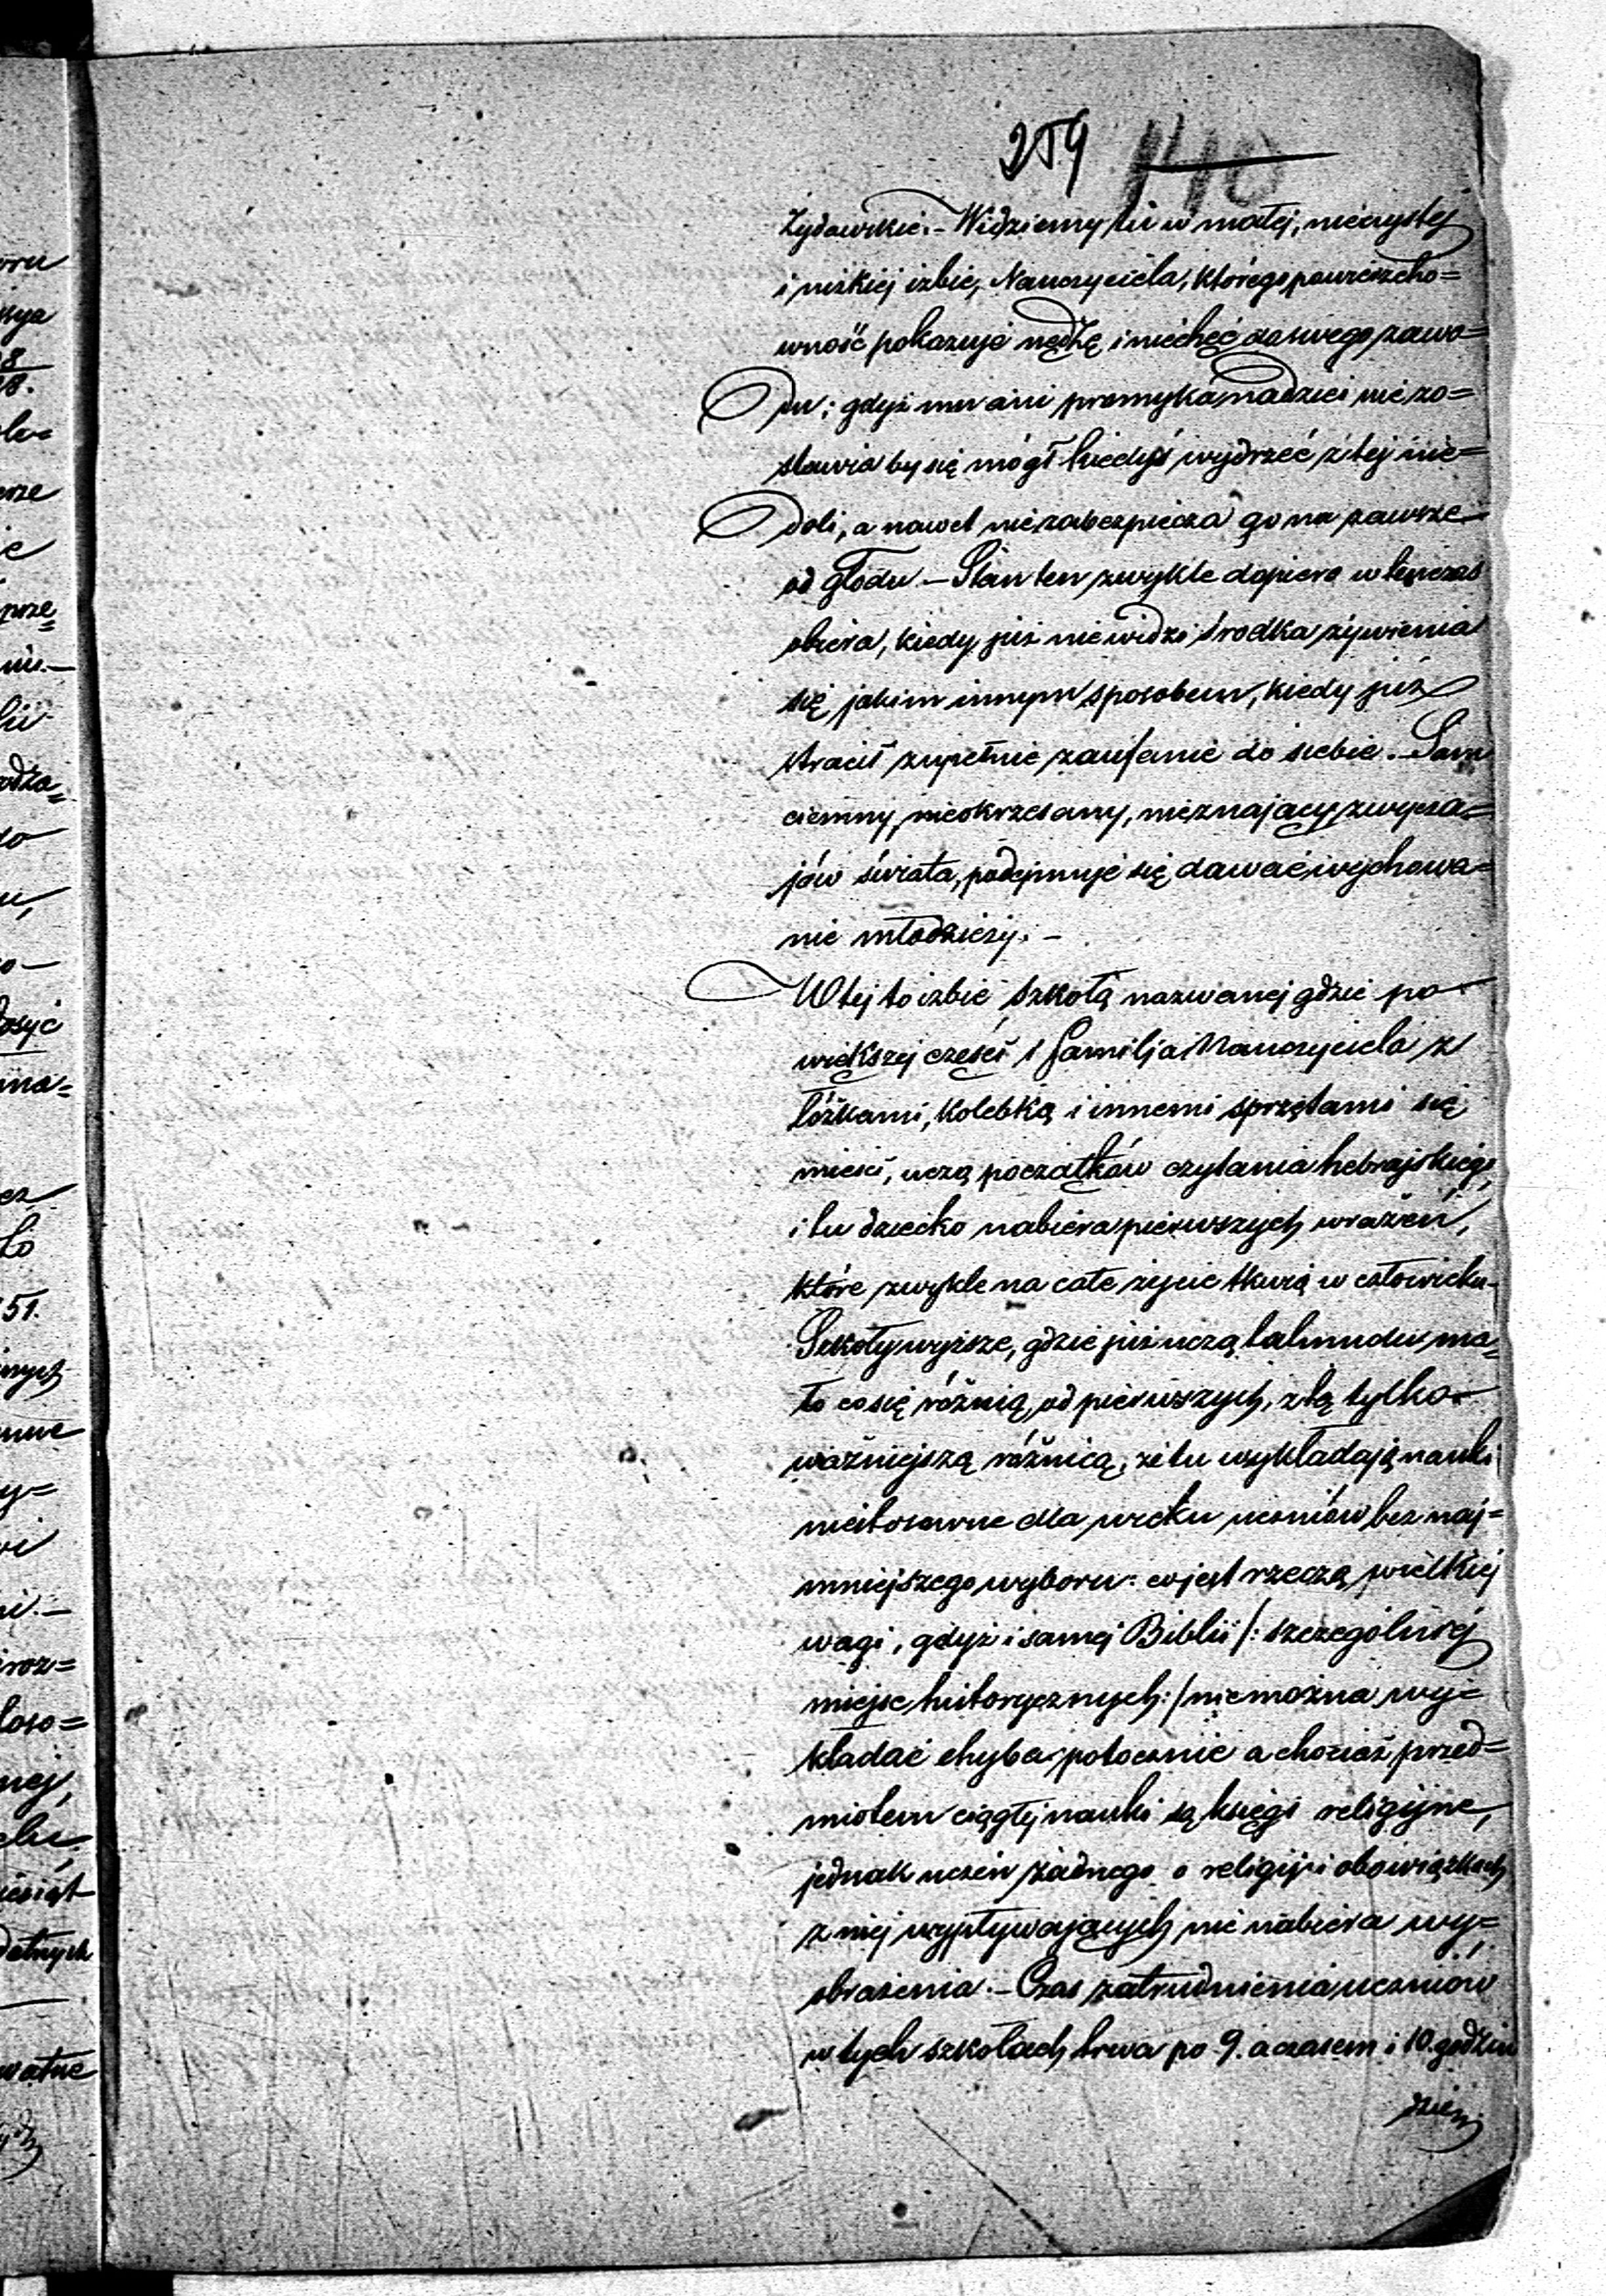 259 140
Żydowskie. – Widziemy tu w małej, nieczystej
i niskiej izbie, Nauczyciela, którego powierzcho=
wność pokazuje nędzę i niechęć do swego zawo=
du; gdyż mu ani promyka nadziei nie zo=
stawia by się mógł kiedyś wydrzeć z tej nie=
doli, a nawet nie zabezpiecza go na zawsze
od głodu – Stan ten zwykle dopiero wtenczas
obiera, kiedy już nie widzi środka żywienia
się jakim innym sposobem, kiedy już
stracił zupełnie zaufanie do siebie. Sam
ciemny, nieokrzesany, nieznający zwycza=
jów świata, podejmuje się dawać wychowa=
nie młodzieży. –
W tej to izbie szkołą nazwanej gdzie po
większej części i familja Nauczyciela z
łóżkami, kolebką i innemi sprzętami się
mieści, uczą początków czytania hebrajskiego,
i tu dziecko nabiera pierwszych wrażeń,
które zwykle na całe życie tkwią w człowieku
Szkoły wyższe, gdzie już uczą talmudu ma=
ło co się różnią od pierwszych, z tą tylko
ważniejszą różnicą, że tu wykładają nauki
niestosowne dla wieku uczniów bez naj=
mniejszego wyboru: co jest rzeczą wielkiej
wagi, gdyż i samej Biblii /: szczególniej
miejsc historycznych :/ nie można wy=
kładać chyba potocznie a chociaż przed=
miotem ciągłej nauki są księgi religijne,
jednak uczeń żadnego o religiji i obowiązkach
z niej wypływających nie nabiera wy=
obrażenia. – Czas zatrudnienia uczniów
w tych szkołach trwa po 9. a czasem i 10. godzin